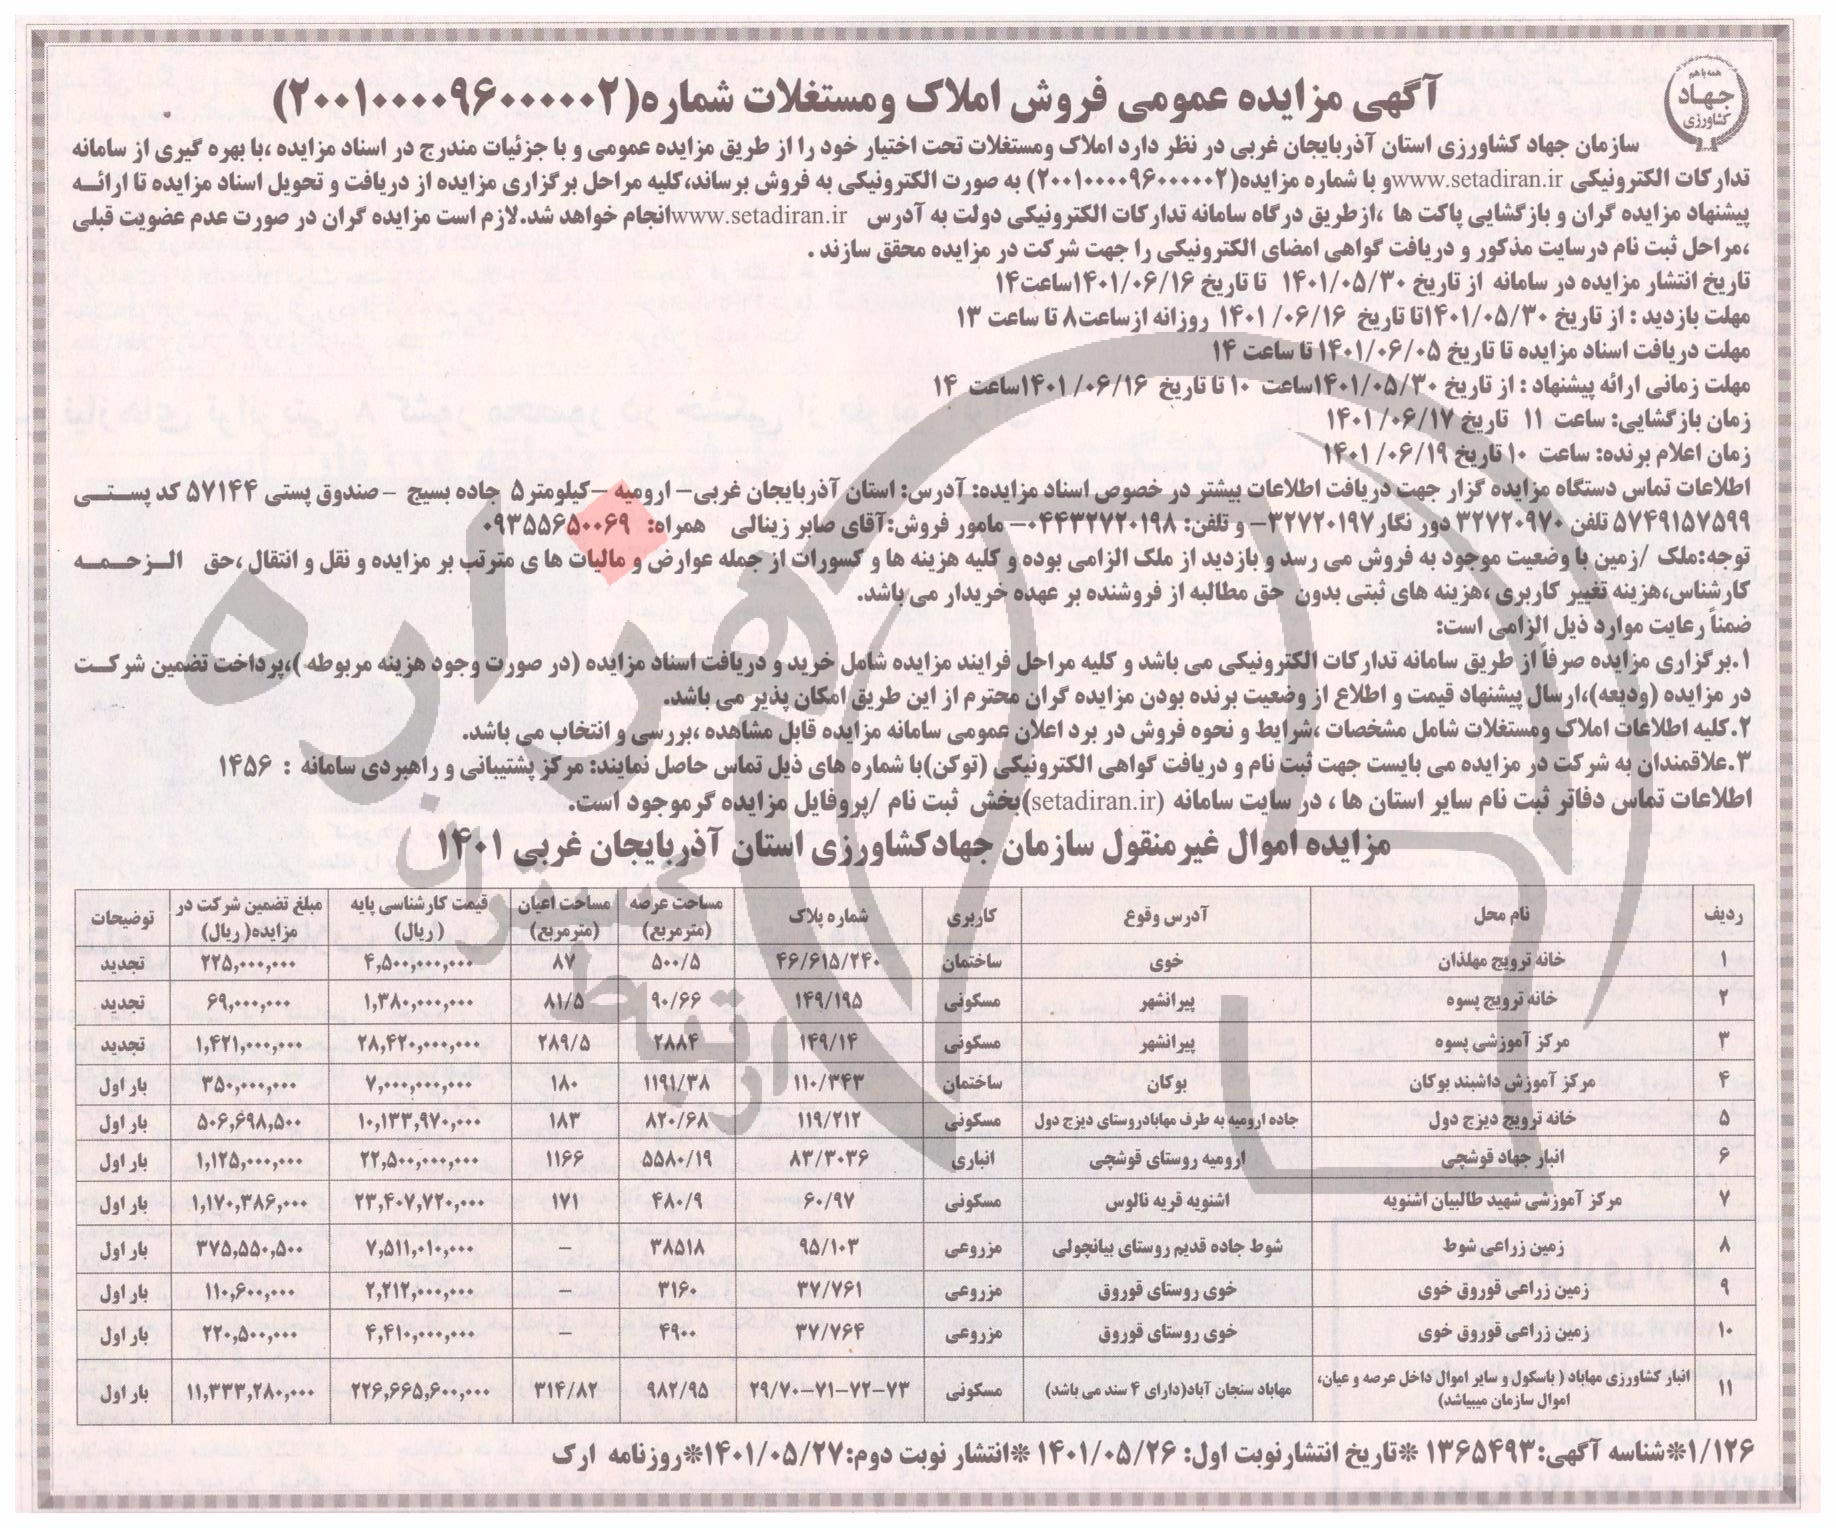 همه با هم
جهاد
کشاورزی
آگهی مزایده عمومی فروش املاک ومستغلات شماره(۲۰۰۱۰۰۰۰۹۶۰۰۰۰۰۲)
سازمان جهاد کشاورزی استان آذربایجان غربی در نظر دارد املاک ومستغلات تحت اختیار خود را از طریق مزایده عمومی و با جزئیات مندرج در اسناد مزایده ،با بهره گیری از سامانه
تدارکات الکترونیکی www.setadiran.irو با شماره مزایده(۲۰۰۱۰۰۰۰۹۶۰۰۰۰۰۲) به صورت الکترونیکی به فروش برساند،کلیه مراحل برگزاری مزایده از دریافت و تحویل اسناد مزایده تا ارائه
پیشنهاد مزایده گران و بازگشایی پاکت ها ،ازطریق درگاه سامانه تدارکات الکترونیکی دولت به آدرس www.setadiran.irانجام خواهد شد.لازم است مزایده گران در صورت عدم عضویت قبلی
،مراحل ثبت نام درسایت مذکور و دریافت گواهی امضای الکترونیکی را جهت شرکت در مزایده محقق سازند .
تاریخ انتشار مزایده در سامانه از تاریخ ۱۴۰۱/۰۵/۳۰ تا تاریخ ۱۴۰۱/۰۶/۱۶ساعت۱۴
مهلت بازدید : از تاریخ ۱۴۰۱/۰۵/۳۰تا تاریخ ۱۴۰۱ /۰۶/۱۶ روزانه ازساعت۸ تا ساعت ۱۳
مهلت دریافت اسناد مزایده تا تاریخ ۱۴۰۱/۰۶/۰۵ تا ساعت ۱۴
مهلت زمانی ارائه پیشنهاد : از تاریخ ۱۴۰۱/۰۵/۳۰ساعت ۱۰ تا تاریخ ۱۴۰۱ /۰۶/۱۶ساعت ۱۴
زمان بازگشایی: ساعت ۱۱ تاریخ ۱۴۰۱ /۰۶/۱۷
زمان اعلام برنده: ساعت ۱۰ تاریخ ۱۴۰۱ /۰۶/۱۹
اطلاعات تماس دستگاه مزایده گزار جهت دریافت اطلاعات بیشتر در خصوص اسناد مزایده: آدرس: استان آذربایجان غربی– ارومیه –کیلومتر۵ جاده بسیج –صندوق پستی ۵۷۱۴۴ کد پستی
۵۷۴۹۱۵۷۵۹۹ تلفن ۳۲۷۲۰۹۷۰ دور نگار ۳۲۷۲۰۱۹۷– و تلفن: ۰۴۴۳۲۷۲۰۱۹۸– مامور فروش:آقای صابر زینالی همراه: ۰۹۳۵۵۶۵۰۰۶۹
توجه:ملک /زمین با وضعیت موجود به فروش می رسد و بازدید از ملک الزامی بوده و کلیه هزینه ها و کسورات از جمله عوارض و مالیات ها ی مترتب بر مزایده و نقل و انتقال ،حق الزحمه
کارشناس،هزینه تغییر کاربری ،هزینه های ثبتی بدون حق مطالبه از فروشنده بر عهده خریدار می باشد.
ضمناً رعایت موارد ذیل الزامی است:
۱.برگزاری مزایده صرفاً از طریق سامانه تدارکات الکترونیکی می باشد و کلیه مراحل فرایند مزایده شامل خرید و دریافت اسناد مزایده (در صورت وجود هزینه مربوطه )،پرداخت تضمین شرکت
در مزایده (ودیعه)،ارسال پیشنهاد قیمت و اطلاع از وضعیت برنده بودن مزایده گران محترم از این طریق امکان پذیر می باشد.
۲.کلیه اطلاعات املاک ومستغلات شامل مشخصات ،شرایط و نحوه فروش در برد اعلان عمومی سامانه مزایده قابل مشاهده ،بررسی و انتخاب می باشد.
۳.علاقمندان به شرکت در مزایده می بایست جهت ثبت نام و دریافت گواهی الکترونیکی (توکن)با شماره های ذیل تماس حاصل نمایند: مرکز پشتیبانی و راهبردی سامانه : ۱۴۵۶
اطلاعات تماس دفاتر ثبت نام سایر استان ها ، در سایت سامانه (setadiran.ir)بخش ثبت نام /پروفایل مزایده گرموجود است.
مزایده اموال غیرمنقول سازمان جهادکشاورزی استان آذربایجان غربی ۱۴۰۱
ردیف نام محل آدرس وقوع کاربری شماره پلاک مساحت عرصه (مترمربع) مساحت اعیان (مترمربع) قیمت کارشناسی پایه (ریال) مبلغ تضمین شرکت در مزایده(ریال) توضیحات
۱ خانه ترویج مهلذان خوی ساختمان ۴۶/۶۱۵/۲۴۰ ۵۰۰/۵ ۸۷ ۴,۵۰۰,۰۰۰,۰۰۰ ۲۲۵,۰۰۰,۰۰۰ تجدید
۲ خانه ترویج پسوه پیرانشهر مسکونی ۱۴۹/۱۹۵ ۹۰/۶۶ ۸۱/۵ ۱,۳۸۰,۰۰۰,۰۰۰ ۶۹,۰۰۰,۰۰۰ تجدید
۳ مرکز آموزشی پسوه پیرانشهر مسکونی ۱۴۹/۱۴ ۲۸۸۴ ۲۸۹/۵ ۲۸,۴۲۰,۰۰۰,۰۰۰ ۱,۴۲۱,۰۰۰,۰۰۰ تجدید
۴ مرکز آموزش داشبند بوکان بوکان ساختمان ۱۱۰/۳۴۳ ۱۱۹۱/۳۸ ۱۸۰ ۷,۰۰۰,۰۰۰,۰۰۰ ۳۵۰,۰۰۰,۰۰۰ بار اول
۵ خانه ترویج دیزج دول جاده ارومیه به طرف مهابادروستای دیزج دول مسکونی ۱۱۹/۲۱۲ ۸۲۰/۶۸ ۱۸۳ ۱۰,۱۳۳,۹۷۰,۰۰۰ ۵۰۶,۶۹۸,۵۰۰ بار اول
۶ انبار جهاد قوشچی ارومیه روستای قوشچی انباری ۸۳/۳۰۳۶ ۵۵۸۰/۱۹ ۱۱۶۶ ۲۲,۵۰۰,۰۰۰,۰۰۰ ۱,۱۲۵,۰۰۰,۰۰۰ بار اول
۷ مرکز آموزشی شهید طالبیان اشنویه اشنویه قریه نالوس مسکونی ۶۰/۹۷ ۴۸۰/۹ ۱۷۱ ۲۳,۴۰۷,۷۲۰,۰۰۰ ۱,۱۷۰,۳۸۶,۰۰۰ بار اول
۸ زمین زراعی شوط شوط جاده قدیم روستای بیانچولی مزروعی ۹۵/۱۰۳ ۳۸۵۱۸ – ۷,۵۱۱,۰۱۰,۰۰۰ ۳۷۵,۵۵۰,۵۰۰ بار اول
۹ زمین زراعی قوروق خوی خوی روستای قوروق مزروعی ۳۷/۷۶۱ ۳۱۶۰ – ۲,۲۱۲,۰۰۰,۰۰۰ ۱۱۰,۶۰۰,۰۰۰ بار اول
۱۰ زمین زراعی قوروق خوی خوی روستای قوروق مزروعی ۳۷/۷۶۴ ۴۹۰۰ – ۴,۴۱۰,۰۰۰,۰۰۰ ۲۲۰,۵۰۰,۰۰۰ بار اول
۱۱ انبار کشاورزی مهاباد ( باسکول و سایر اموال داخل عرصه و عیان، اموال سازمان میباشد) مهاباد سنجان آباد(دارای ۴ سند می باشد) مسکونی ۲۹/۷۰-۷۱-۷۲-۷۳ ۹۸۲/۹۵ ۳۱۴/۸۲ ۲۲۶,۶۶۵,۶۰۰,۰۰۰ ۱۱,۳۳۳,۲۸۰,۰۰۰ بار اول
۱/۱۲۶*شناسه آگهی:۱۳۶۵۴۹۳ *تاریخ انتشارنوبت اول: ۱۴۰۱/۰۵/۲۶ *انتشار نوبت دوم:۱۴۰۱/۰۵/۲۷*روزنامه ارک
هزاره